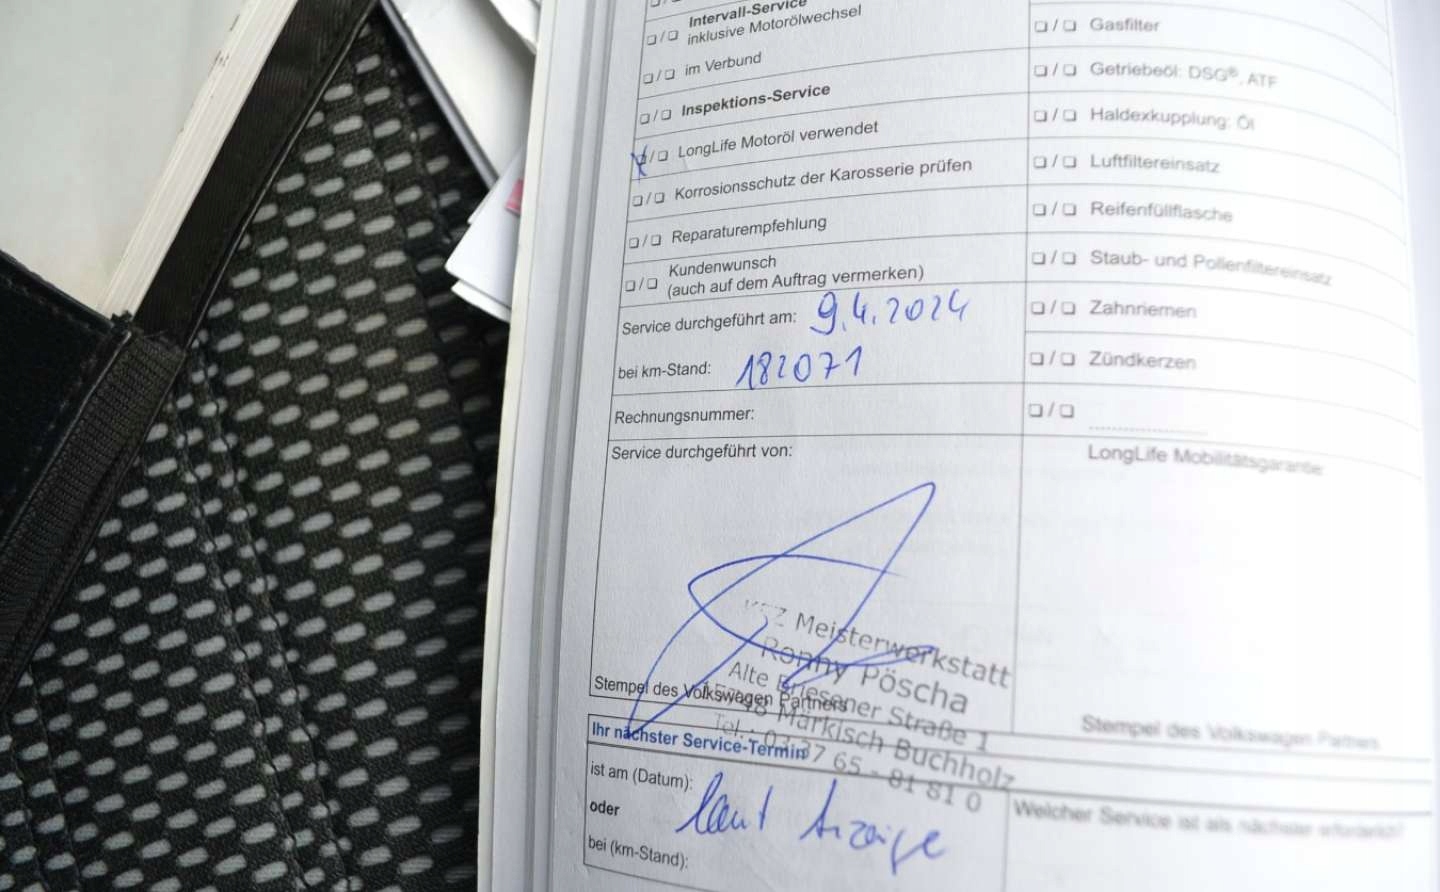 Intervall-Service
inklusive Motorölwechsel
im Verbund
Inspektions-Service
LongLife Motoröl verwendet
Korrosionsschutz der Karosserie prüfen
Reparaturempfehlung
Kundenwunsch
(auch auf dem Auftrag vermerken)
Service durchgeführt am: 9.4.2024
bei km-Stand: 182071
Rechnungsnummer:
Service durchgeführt von:
Meisterwerkstatt
Ronny Pöscha
Alte Briesener Straße 1
Märkisch Buchholz
Tel.: 65 - 81 81 0
Stempel des Volkswagen Partners
Ihr nächster Service-Termin
ist am (Datum):
oder laut Anzeige
bei (km-Stand):
Gasfilter
Getriebeöl: DSG®, ATF
Haldexkupplung: Öl
Luftfiltereinsatz
Reifenfüllflasche
Staub- und Pollenfiltereinsatz
Zahnriemen
Zündkerzen
LongLife Mobilitätsgarantie
Stempel des Volkswagen Partners
Welcher Service ist als nächster erforderlich?